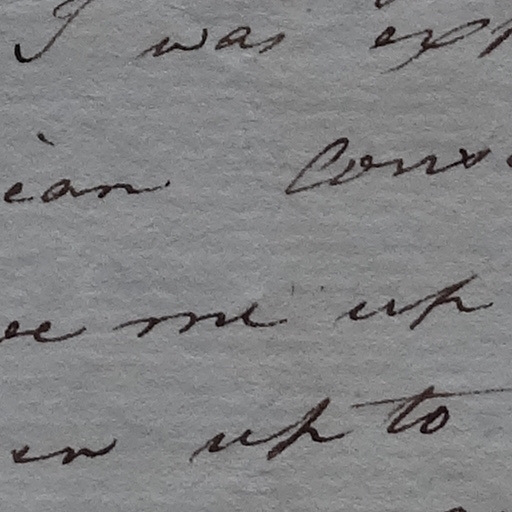 I was exp
ian Cons
me up
en up to